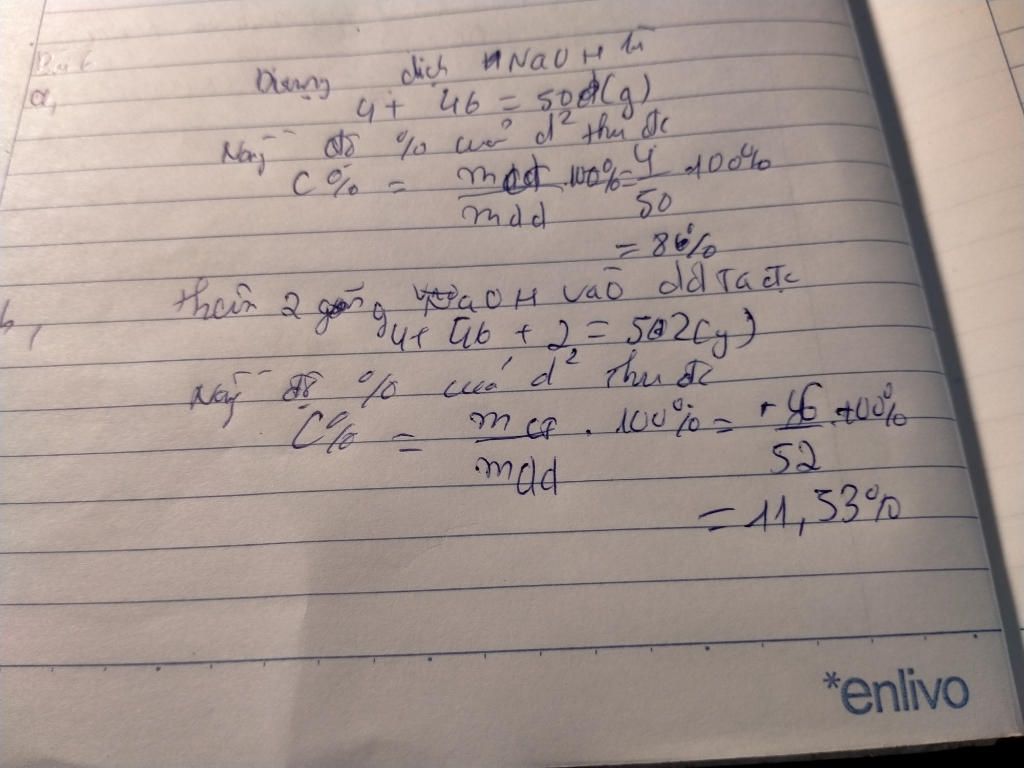 Bài 6
a, Dung dịch NaOH là
4 + 46 = 50 (g)
Nồng độ % của d² thu đc
C% = mct/mdd . 100% = 4/50 . 100%
= 8%
b, thêm 2 g NaOH vào dd Ta đc
4 + 46 + 2 = 52 (g)
Nồng độ % của d² thu đc
C% = mct/mdd . 100% = 6/52 . 100%
= 11,53%
*enlivo